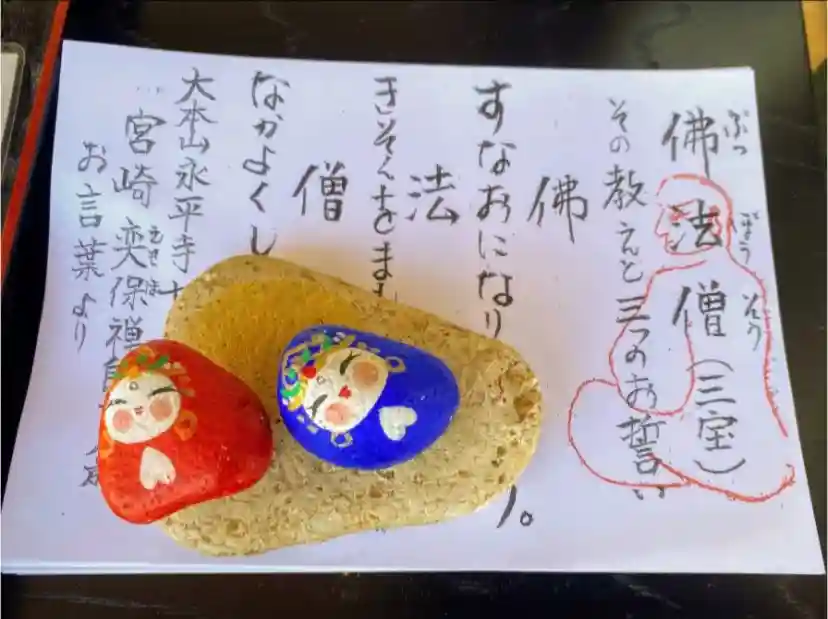 ぶっ ぽう そう
佛 法 僧(三宝)
その教えと三つのお誓い
佛
すなおになり
法
きそくをま
僧
なかよくし
大本山永平寺
宮崎 奕保禅
お言葉より